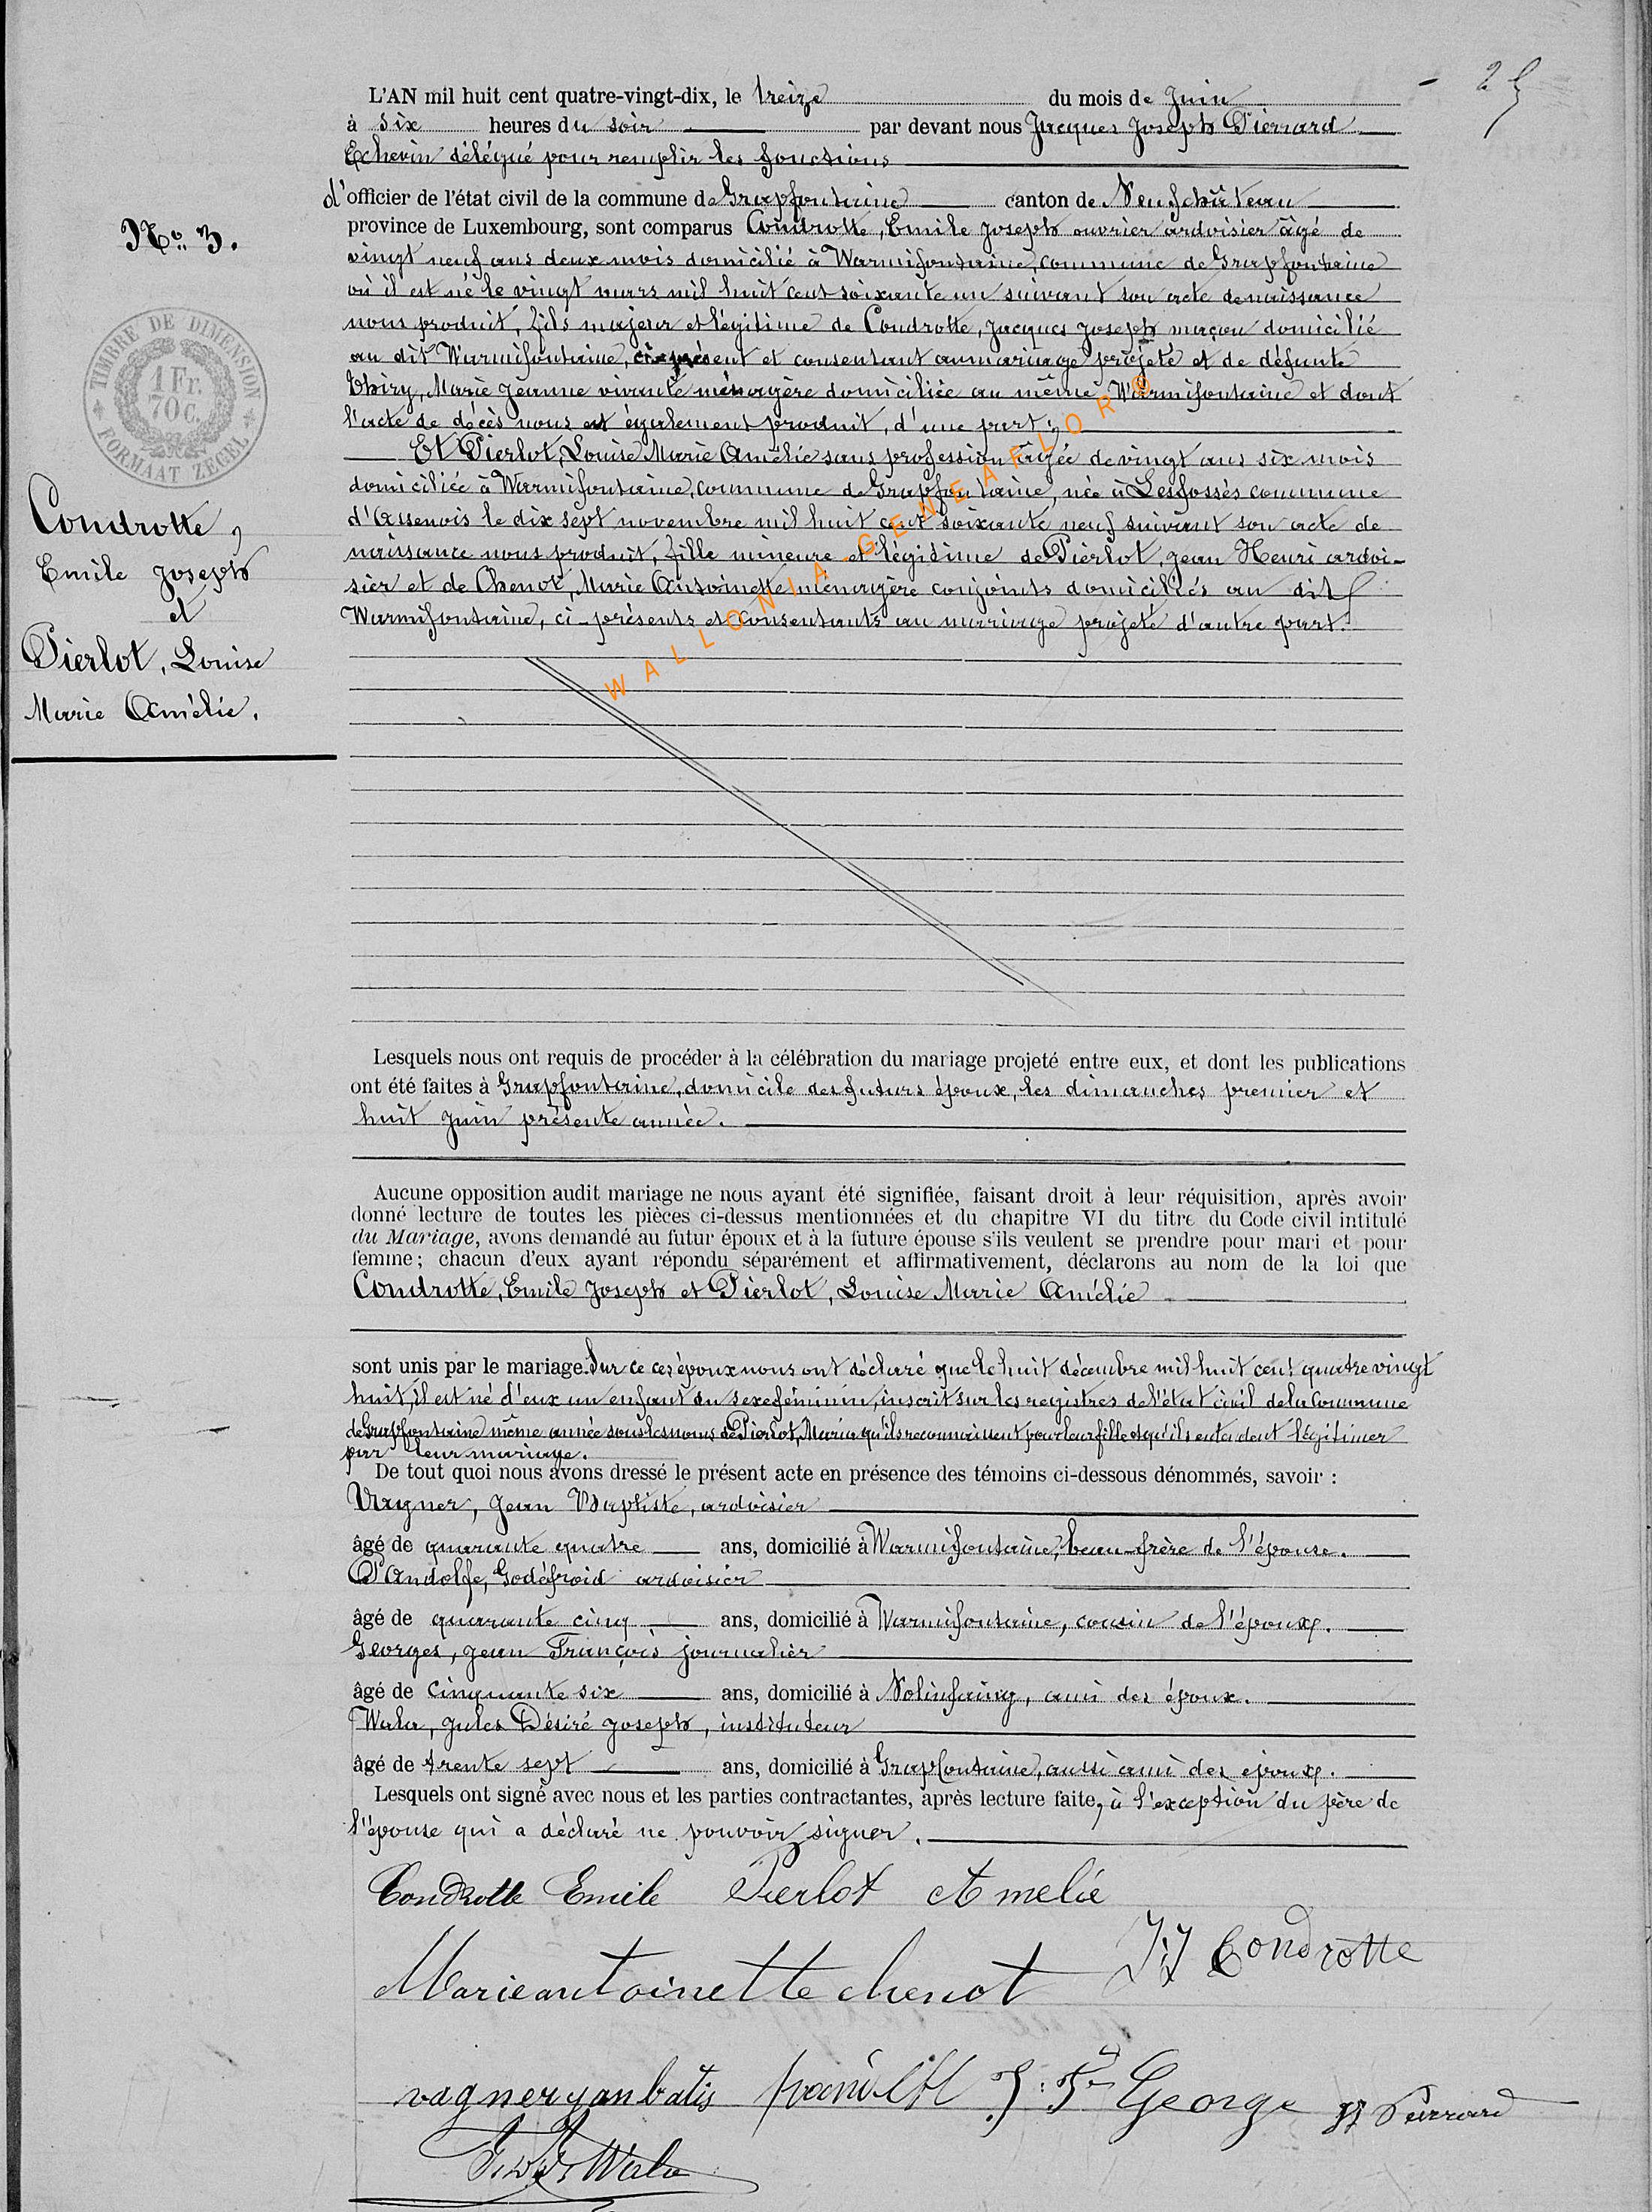 25
L'AN mil huit cent quatre-vingt-dix, le treize du mois de Juin
à six heures du soir par devant nous Jacques Joseph Pierrard
Echevin délégué pour remplir les fonctions
d'officier de l'état civil de la commune de Grapfontaine canton de Neufchâteau
province de Luxembourg, sont comparus Condrotte, Emile Joseph ouvrier ardoisier âgé de
vingt neuf ans deux mois domicilié à Warmifontaine, commune de Grapfontaine
où il est né le vingt mars mil huit cent soixante un suivant son acte de naissance
nous produit, fils majeur et légitime de Condrotte, Jacques Joseph maçon domicilié
au dit Warmifontaine, ci-présent et consentant au mariage projeté et de défunte
Thiry, Marie Jeanne vivante ménagère domiciliée au même Warmifontaine et dont
l'acte de décès nous est également produit, d'une part;
Et Pierlot, Louise Marie Amélie sans profession âgée de vingt ans six mois
domiciliée à Warmifontaine, commune de Grapfontaine, née à Lesfossés commune
d'Assenois le dix sept novembre mil huit cent soixante neuf suivant son acte de
naissance nous produit, fille mineure et légitime de Pierlot, Jean Henri ardoi-
sier et de Chenot, Marie Antoinette ménagère conjoints domiciliés au dit
Warmifontaine, ci-présents et consentants au mariage projeté d'autre part.
No 3.
TIMBRE DE DIMENSION
1 Fr.
70 C.
FORMAAT ZEGEL
Condrotte,
Emile Joseph
et
Pierlot, Louise
Marie Amélie.
WALLONIA-GENEAFLOR®
Lesquels nous ont requis de procéder à la célébration du mariage projeté entre eux, et dont les publications
ont été faites à Grapfontaine, domicile des futurs époux, les dimanches premier et
huit Juin présente année.
Aucune opposition audit mariage ne nous ayant été signifiée, faisant droit à leur réquisition, après avoir
donné lecture de toutes les pièces ci-dessus mentionnées et du chapitre VI du titre du Code civil intitulé
du Mariage, avons demandé au futur époux et à la future épouse s'ils veulent se prendre pour mari et pour
femme; chacun d'eux ayant répondu séparément et affirmativement, déclarons au nom de la loi que
Condrotte, Emile Joseph et Pierlot, Louise Marie Amélie
sont unis par le mariage. Sur ce ces époux nous ont déclaré que le huit décembre mil huit cent quatre vingt
huit, il est né d'eux un enfant du sexe féminin, inscrit sur les registres de l'état civil de la Commune
de Grapfontaine même année sous les noms de Pierlot, Maria qu'ils reconnaissent pour leur fille et qu'ils entendent légitimer
par leur mariage.
De tout quoi nous avons dressé le présent acte en présence des témoins ci-dessous dénommés, savoir :
Vagner, Jean Baptiste, ardoisier
âgé de quarante quatre ans, domicilié à Warmifontaine, beau-frère de l'épouse.
Pandolfe, Godefroid ardoisier
âgé de quarante cinq ans, domicilié à Warmifontaine, cousin de l'époux.
Georges, Jean François journalier
âgé de cinquante six ans, domicilié à Nolinfaing, ami des époux.
Wala, Jules Désiré Joseph, instituteur
âgé de trente sept ans, domicilié à Grapfontaine, aussi ami des époux.
Lesquels ont signé avec nous et les parties contractantes, après lecture faite, à l'exception du père de
l'épouse qui a déclaré ne pouvoir signer.
Condrotte Emile Pierlot Amelie
JJ Condrotte
Marieantoinette chenot
vagner yanbatis J. Fs George JJ Pierrard
J. D. J. Wala